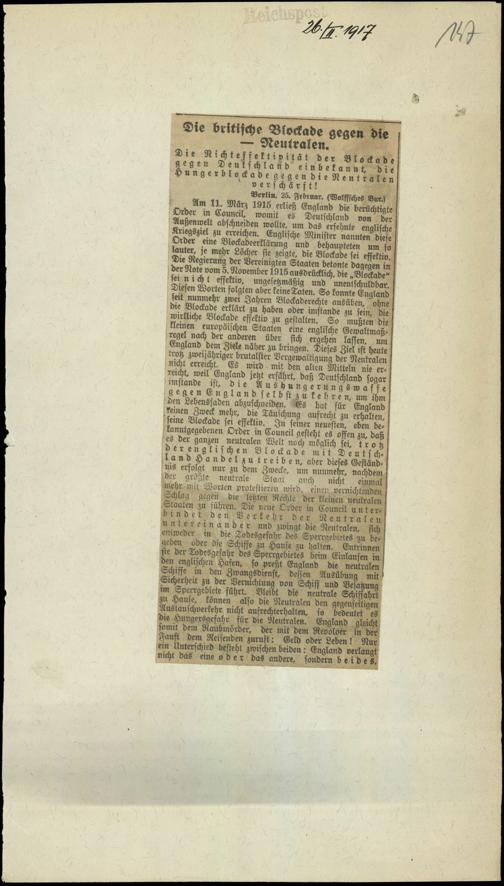 Reichspost
26./II. 1917
147
Die britische Blockade gegen die
— Neutralen.
Die Nichteffektivität der Blockade
gegen Deutschland einbekannt, die
Hungerblockade gegen die Neutralen
verschärft!
Berlin, 25. Februar. (Wolffsches Bur.)
Am 11. März 1915 erließ England die berüchtigte
Order in Council, womit es Deutschland von der
Außenwelt abschneiden wollte, um das ersehnte englische
Kriegsziel zu erreichen. Englische Minister nannten diese
Order eine Blockadeerklärung und behaupteten um so
lauter, je mehr Löcher sie zeigte, die Blockade sei effektiv.
Die Regierung der Vereinigten Staaten betonte dagegen in
der Note vom 5. November 1915 ausdrücklich, die „Blockade"
sei nicht effektiv, ungesetzmäßig und unentschuldbar.
Diesen Worten folgten aber keine Taten. So konnte England
seit nunmehr zwei Jahren Blockaderechte ausüben, ohne
die Blockade erklärt zu haben oder imstande zu sein, die
wirkliche Blockade effektiv zu gestalten. So mußten die
kleinen europäischen Staaten eine englische Gewaltmaß-
regel nach der anderen über sich ergehen lassen, um
England dem Ziele näher zu bringen. Dieses Ziel ist heute
trotz zweijähriger brutalster Vergewaltigung der Neutralen
nicht erreicht. Es wird mit den alten Mitteln nie er-
reicht, weil England jetzt erfährt, daß Deutschland sogar
imstande ist, die Aushungerungswaffe
gegen England selbst zu kehren, um ihm
den Lebensfaden abzuschneiden. Es hat für England
keinen Zweck mehr, die Täuschung aufrecht zu erhalten,
seine Blockade sei effektiv. In seiner neuesten, eben be-
kanntgegebenen Order in Council gesteht es offen zu, daß
es der ganzen neutralen Welt noch möglich sei, trotz
der englischen Blockade mit Deutsch-
land Handel zu treiben, aber dieses Geständ-
nis erfolgt nur zu dem Zwecke, um nunmehr, nachdem
der größte neutrale Staat auch nicht einmal
mehr mit Worten protestieren wird, einen vernichtenden
Schlag gegen die letzten Rechte der kleinen neutralen
Staaten zu führen. Die neue Order in Council unter-
bindet den Verkehr der Neutralen
untereinander und zwingt die Neutralen, sich
entweder in die Todesgefahr des Sperrgebietes zu be-
geben oder die Schiffe zu Hause zu halten. Entrinnen
sie der Todesgefahr des Sperrgebietes beim Einlaufen in
den englischen Hafen, so preßt England die neutralen
Schiffe in den Zwangsdienst, dessen Ausübung mit
Sicherheit zu der Vernichtung von Schiff und Besatzung
im Sperrgebiete führt. Bleibt die neutrale Schiffahrt
zu Hause, können also die Neutralen den gegenseitigen
Austauschverkehr nicht aufrechterhalten, so bedeutet es
die Hungersgefahr für die Neutralen. England gleicht
somit dem Raubmörder, der mit dem Revolver in der
Faust dem Reisenden zuruft: Geld oder Leben! Nur
ein Unterschied besteht zwischen beiden: England verlangt
nicht das eine oder das andere, sondern beides.